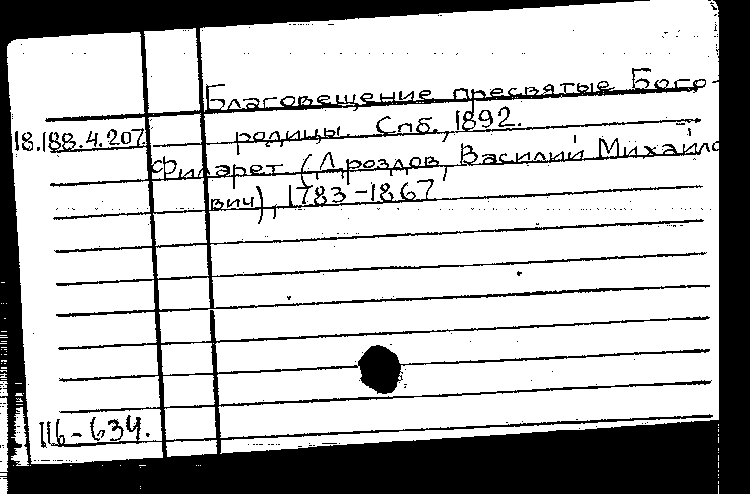 Благовещение пресвятые Бого-
18.188.4.207 родицы. Спб., 1892.
Филарет (Дроздов, Василий Михайло
вич), 1783-1867
116-634.